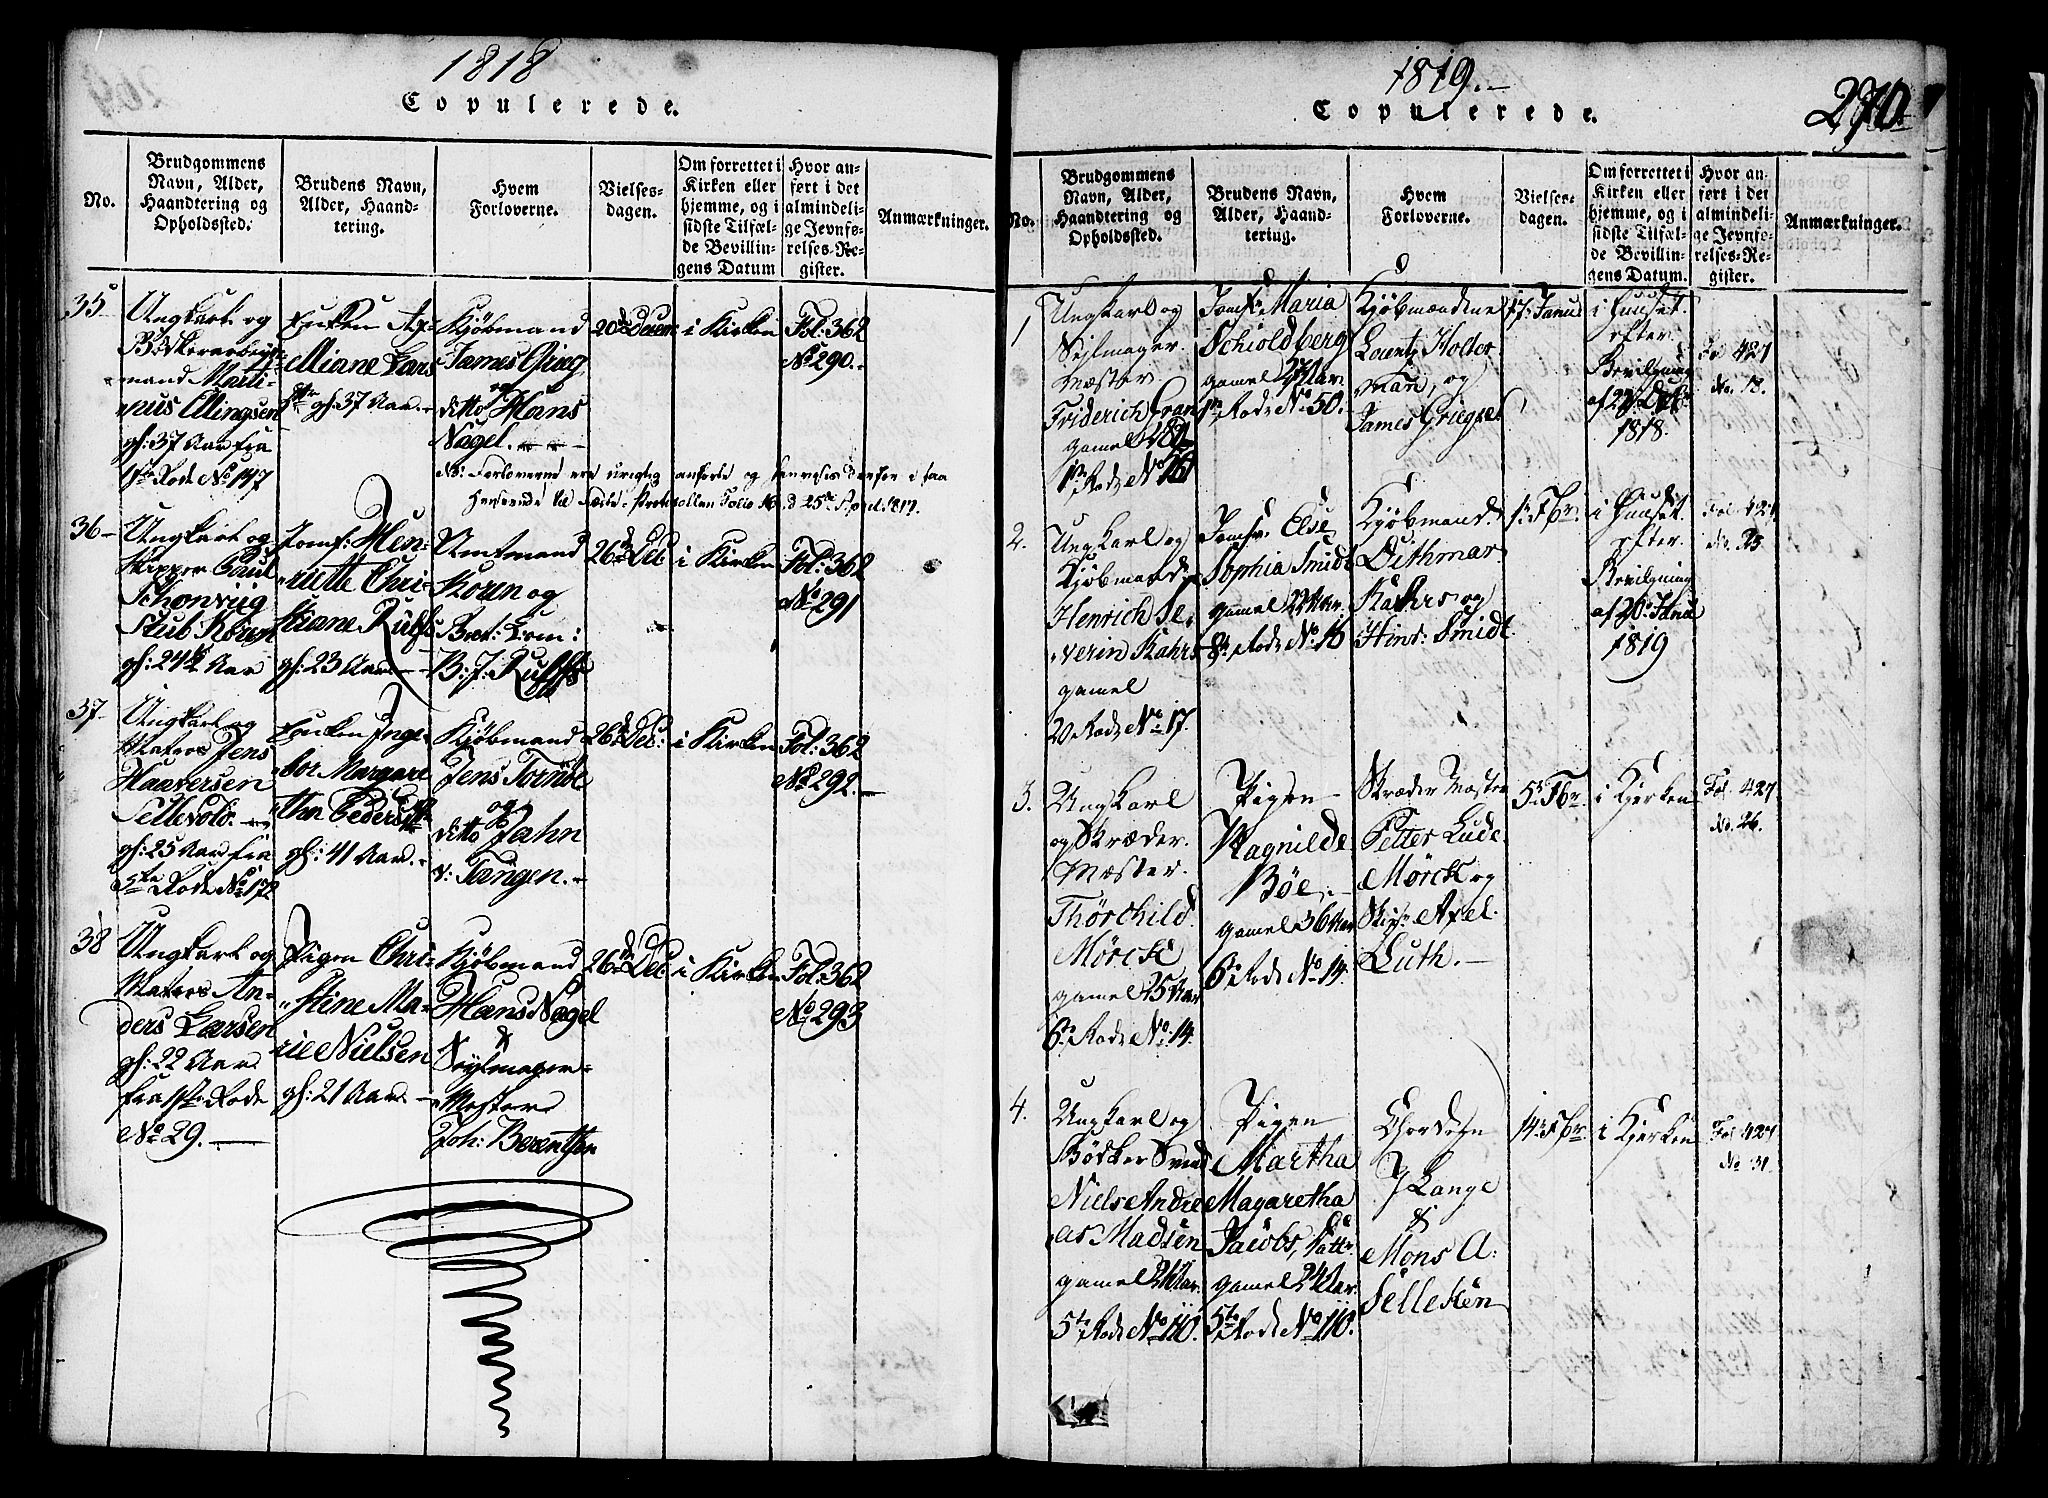 1818
Copulerede.
No.
Brudgommens
Navn, Alder,
Haandtering og
Opholdssted.
Brudens Navn,
Alder, Haand-
tering.
Hvem
Forloverne.
Vielses-
dagen.
Om forrettet i
Kirken eller
hjemme, og i
sidste Tilfæl-
de Bevillin-
gens Datum
Hvor an-
ført i det
almindeli-
ge Jevnfø-
relses-Re-
gister.
Anmærkninger.
35
Ungkarl og
Bödkerarbeyds-
mand Marti-
nus Ellingsen
gl: 37 Aar fra
No 147
Enken
Miane Lars
gl: 37 Aar.
Kjöbmand
James Grieg
og
ditto Hans
Nagel.
20de Decem:
i Kirken
Fol: 362
No 290.
NB: Forloverne ere urigtig anførte og
Folio 16
36
Ungkarl og
Skipper Paul
Schönvug
Stub Koren
gl: 24 1/2 Aar
Jomf: Hen-
riette Chri-
stiane Rulffs
gl: 23 Aar
Amtmand
Koren og
B: J: Rulffs
26de Dec:
i Kirken
Fol: 362
No 291
37
Ungkarl og
Matros Jens
Haaversen
Sellevold.
gl: 25 Aar fra
5te Rode No 172
Enken Inge-
bor Margare
then Peders
gl: 41 Aar.
Kjöbmand
Jens
og
ditto Jahn
v: Tangen.
26de Dec:
i Kirken
Fol: 362
No 292.
38
Ungkarl og
Matros An-
ders Larsen
gl: 22 Aar
fra Rode
No 29.
Pigen Chri-
stine Ma-
rie Nielsen
gl: 21 Aar.
Kjöbmand
Hans Nagel
&
Seylmager-
Mester
Joh: Berentsen
26de Dec
i Kirken
Fol: 362
No 293
1819.
Copulerede.
270
No.
Brudgommens
Navn, Alder,
Haandtering og
Opholdssted.
Brudens Navn,
Alder, Haand-
tering.
Hvem
Forloverne.
Vielses-
dagen.
Om forrettet i
Kirken eller
hjemme, og i
sidste Tilfæl-
de Bevillin-
gens Datum.
Hvor an-
ført i det
almindeli-
ge Jevnfø-
relses-Re-
gister.
Anmærkninger.
1
Ungkarl og
Sejlmager
Mæster
Friderich Gran
gamel
Rode No 161
Jomfr: Maria
Schioldberg
gamel 27 Aar.
Rode No 50.
Kjöbmændene
Lorentz Holter
man, og
James Grieg
17: Janu
i Huuset
efter
Bevilgning
1818.
Fol 427
No.
2.
Ungkarl og
Kjöbmand
Henrich Se-
verin Kahrs
gamel
20 Rode No 17.
Jomfr: Else
Sophia Smidt
gamel 22 Aar
8de Rode No 16
Kjöbmand.
Dethmar
Kahrs og
Hinr: Smidt.
1: Fbr.
i Huuset.
efter
Bevilgning
af 20: Janu
1819
Fol 427
No. 25
3.
Ungkarl
og Skræder
Mæster.
Thörchild
Mörck
gamel 25 Aar
6te Rode No 14.
Pigen
Ragnilde
Böe.
gamel 36 Aar
6te Rode No 14.
Skræder Mæster
Petter Lude
Mörck og
Skip: Axel
Luth.
5: Fbr.
i Kjerken
Fol 427
No. 26.
4.
Ungkarl og
Bödker Svend
Niels Andre
as Madsen
gamel Aar.
5te Rode No 110.
Pigen
Martha
Magaretha
Jacobs, Datt:
gamel 24 Aar.
5te Rode No 110.
J Lange
&
Mons A:
Selleken
14: Fbr
i Kjerken
Fol 427
No 31.